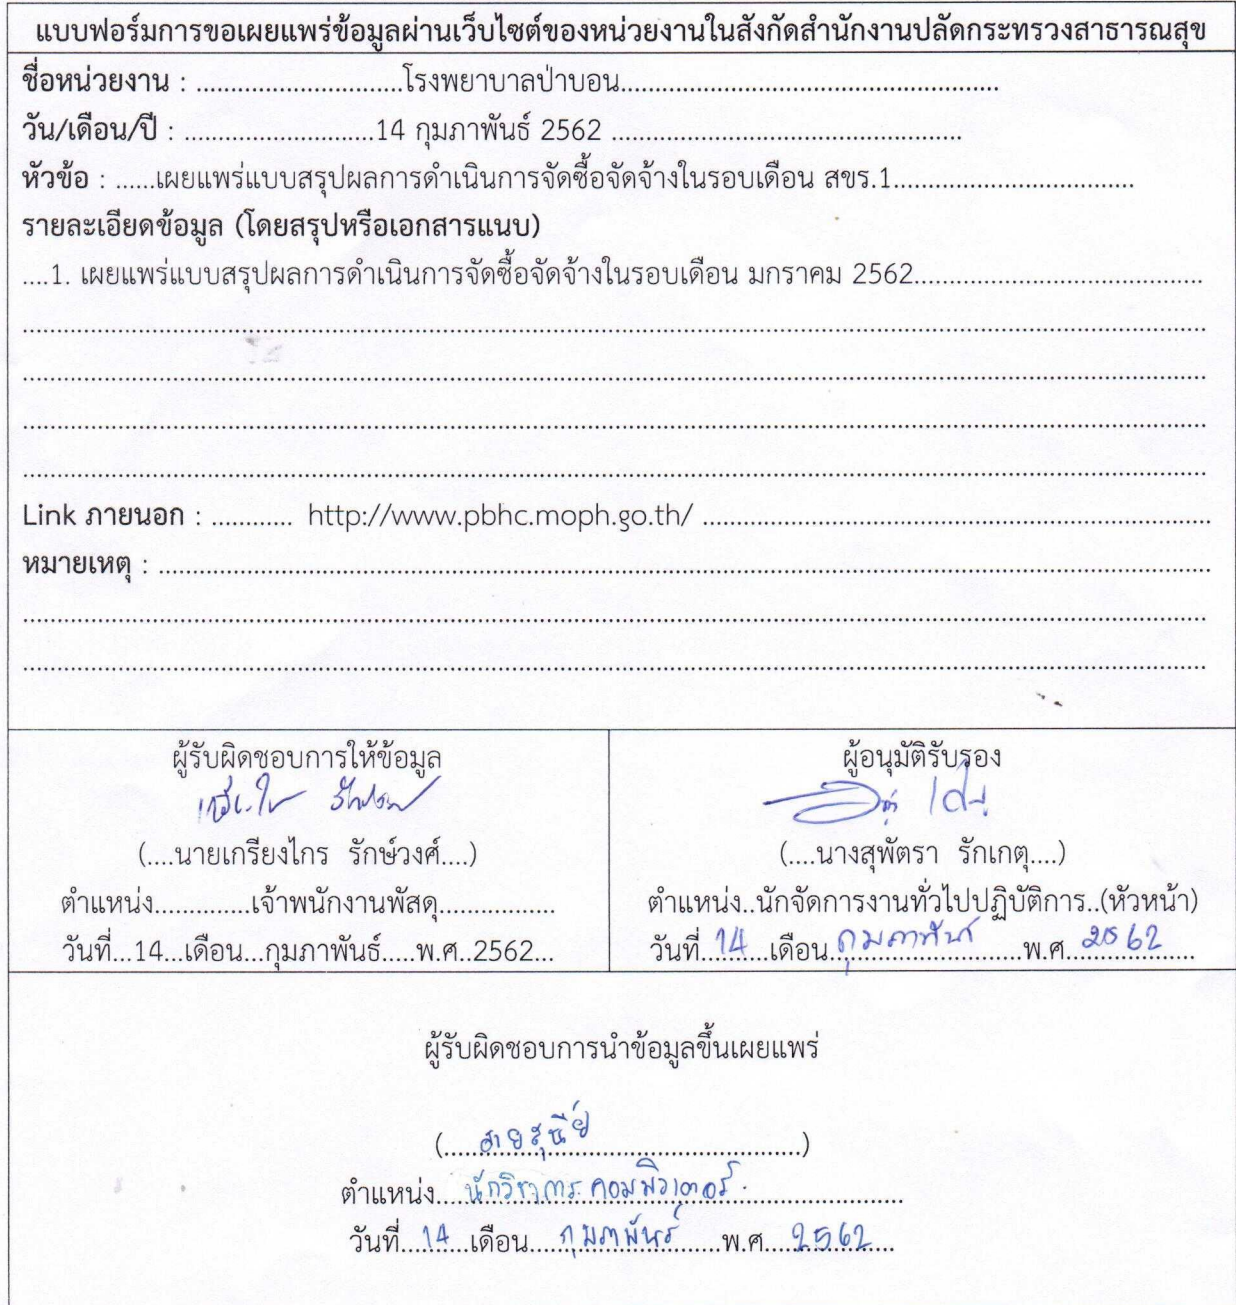 แบบฟอร์มการขอเผยแพร่ข้อมูลผ่านเว็บไซต์ของหน่วยงานในสังกัดสำนักงานปลัดกระทรวงสาธารณสุข
ชื่อหน่วยงาน : ..............................โรงพยาบาลป่าบอน.......................................................
วัน/เดือน/ปี : ............................14 กุมภาพันธ์ 2562 ...................................................
หัวข้อ : ......เผยแพร่แบบสรุปผลการดำเนินการจัดซื้อจัดจ้างในรอบเดือน สขร.1...................................
รายละเอียดข้อมูล (โดยสรุปหรือเอกสารแนบ)
....1. เผยแพร่แบบสรุปผลการดำเนินการจัดซื้อจัดจ้างในรอบเดือน มกราคม 2562..........................................
Link ภายนอก : ............ http://www.pbhc.moph.go.th/ ..........................................................................
หมายเหตุ : ..........................................................................................................
ผู้รับผิดชอบการให้ข้อมูล
(....นายเกรียงไกร รักษ์วงศ์....)
ตำแหน่ง..............เจ้าพนักงานพัสดุ.................
วันที่...14...เดือน...กุมภาพันธ์.....พ.ศ..2562...
ผู้อนุมัติรับรอง
(....นางสุพัตรา รักเกตุ....)
ตำแหน่ง..นักจัดการงานทั่วไปปฏิบัติการ..(หัวหน้า)
วันที่ 14 เดือน กุมภาพันธ์ พ.ศ. 2562
ผู้รับผิดชอบการนำข้อมูลขึ้นเผยแพร่
ตำแหน่ง....นักวิชาการคอมพิวเตอร์
วันที่....14....เดือน....กุมภาพันธ์....พ.ศ....2562....